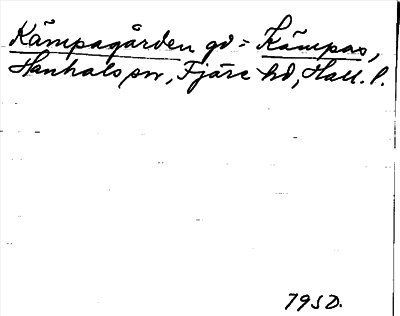 Kämpagården gd = Kämpas,
Hanhals sn, Fjäre hd, Hall. l.
795D.